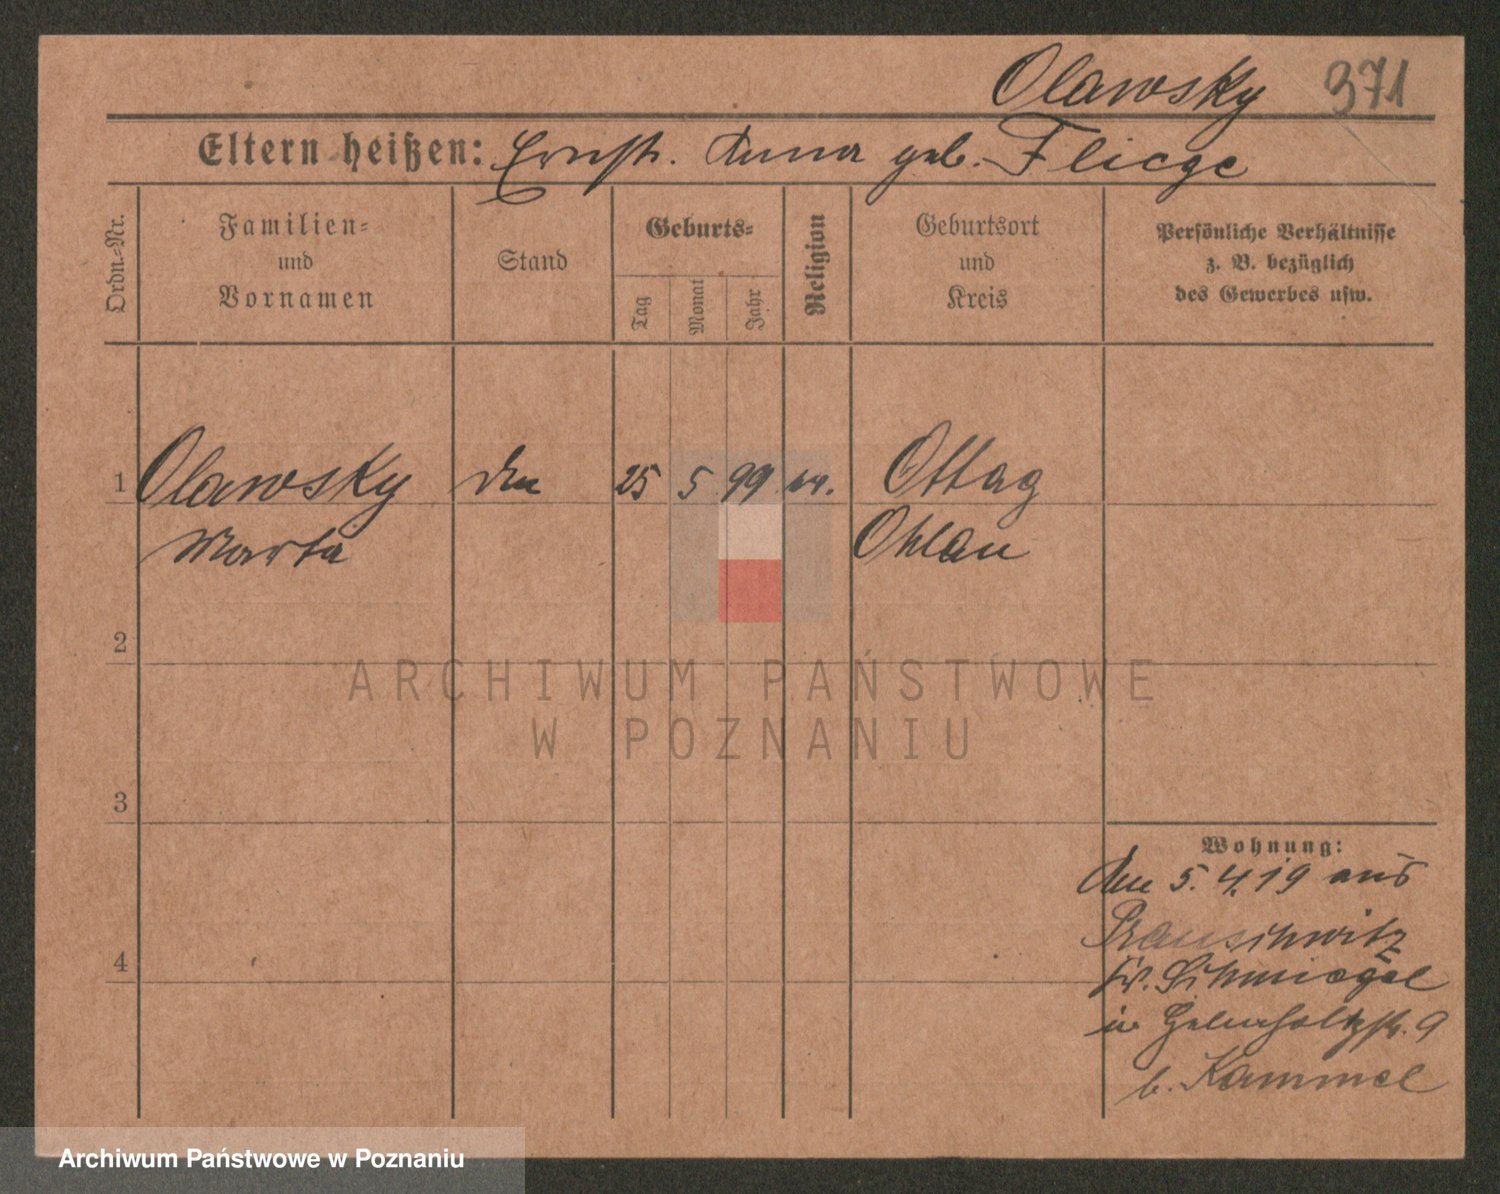 Olawsky 371
Eltern heißen: Ernst. Anna geb. Fliege
Ordn.-Nr.
Familien-
und
Vornamen
Stand
Geburts-
Tag
Monat
Jahr
Religion
Geburtsort
und
Kreis
Persönliche Verhältnisse
z. B. bezüglich
des Gewerbes usw.
1 Olawsky 25 5 99 ev. Ottag
Marta Ohlau
2
3
4
Wohnung:
den 5. 4. 19 aus
Kr. Schmiegel
in 9
b. Kammel
ARCHIWUM PAŃSTWOWE
W POZNANIU
Archiwum Państwowe w Poznaniu